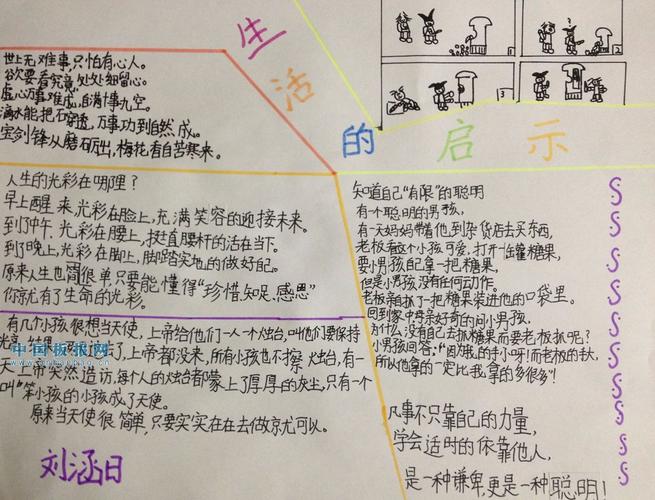 生活的启示
世上无难事,只怕有心人。
欲要看究竟,处处细留心。
虚心万事难成,自满十事九空。
滴水能把石穿透,万事功到自然成。
宝剑锋从磨石历出,梅花香自苦寒来。
1
2
人生的光彩在哪理?
早上醒来,光彩在脸上,充满笑容的迎接未来。
到了中午,光彩在腰上,挺直腰杆的活在当下。
到了晚上,光彩在脚上,脚踏实地的做好自己。
原来人生也简很单,只要能懂得“珍惜、知足、感恩”
你就有了生命的光彩。
有几个小孩很想当天使,上帝给他们一人一个烛台,叫他们要保持
上帝都没来,所有小孩也不擦烛台,有一
天上帝突然造访,每个人的烛台都蒙上了厚厚的灰尘,只有一个
叫“笨小孩的小孩成了天使。
原来当天使很简单,只要实实在在去做就可以。
中国板报网
刘涵日
知道自己“有限”的聪明
有个聪明的男孩,
有一天妈妈带着他到杂货店去买东西,
老板看这个小孩可爱,打开一罐糖果,
要小男孩自己拿一把糖果,
但是小男孩没有任何动作。
老板亲自抓了一把糖果装进他的口袋里。
回到家中,母亲好奇的问小男孩,
为什么没有自己去抓糖果而要老板抓呢?
小男孩回答:“因为我的手小呀!而老板的手大,
所以他拿的一定比我拿的多很多!
凡事不只靠自己的力量,
学会适时的依靠他人,
是一种谦卑更是一种聪明!